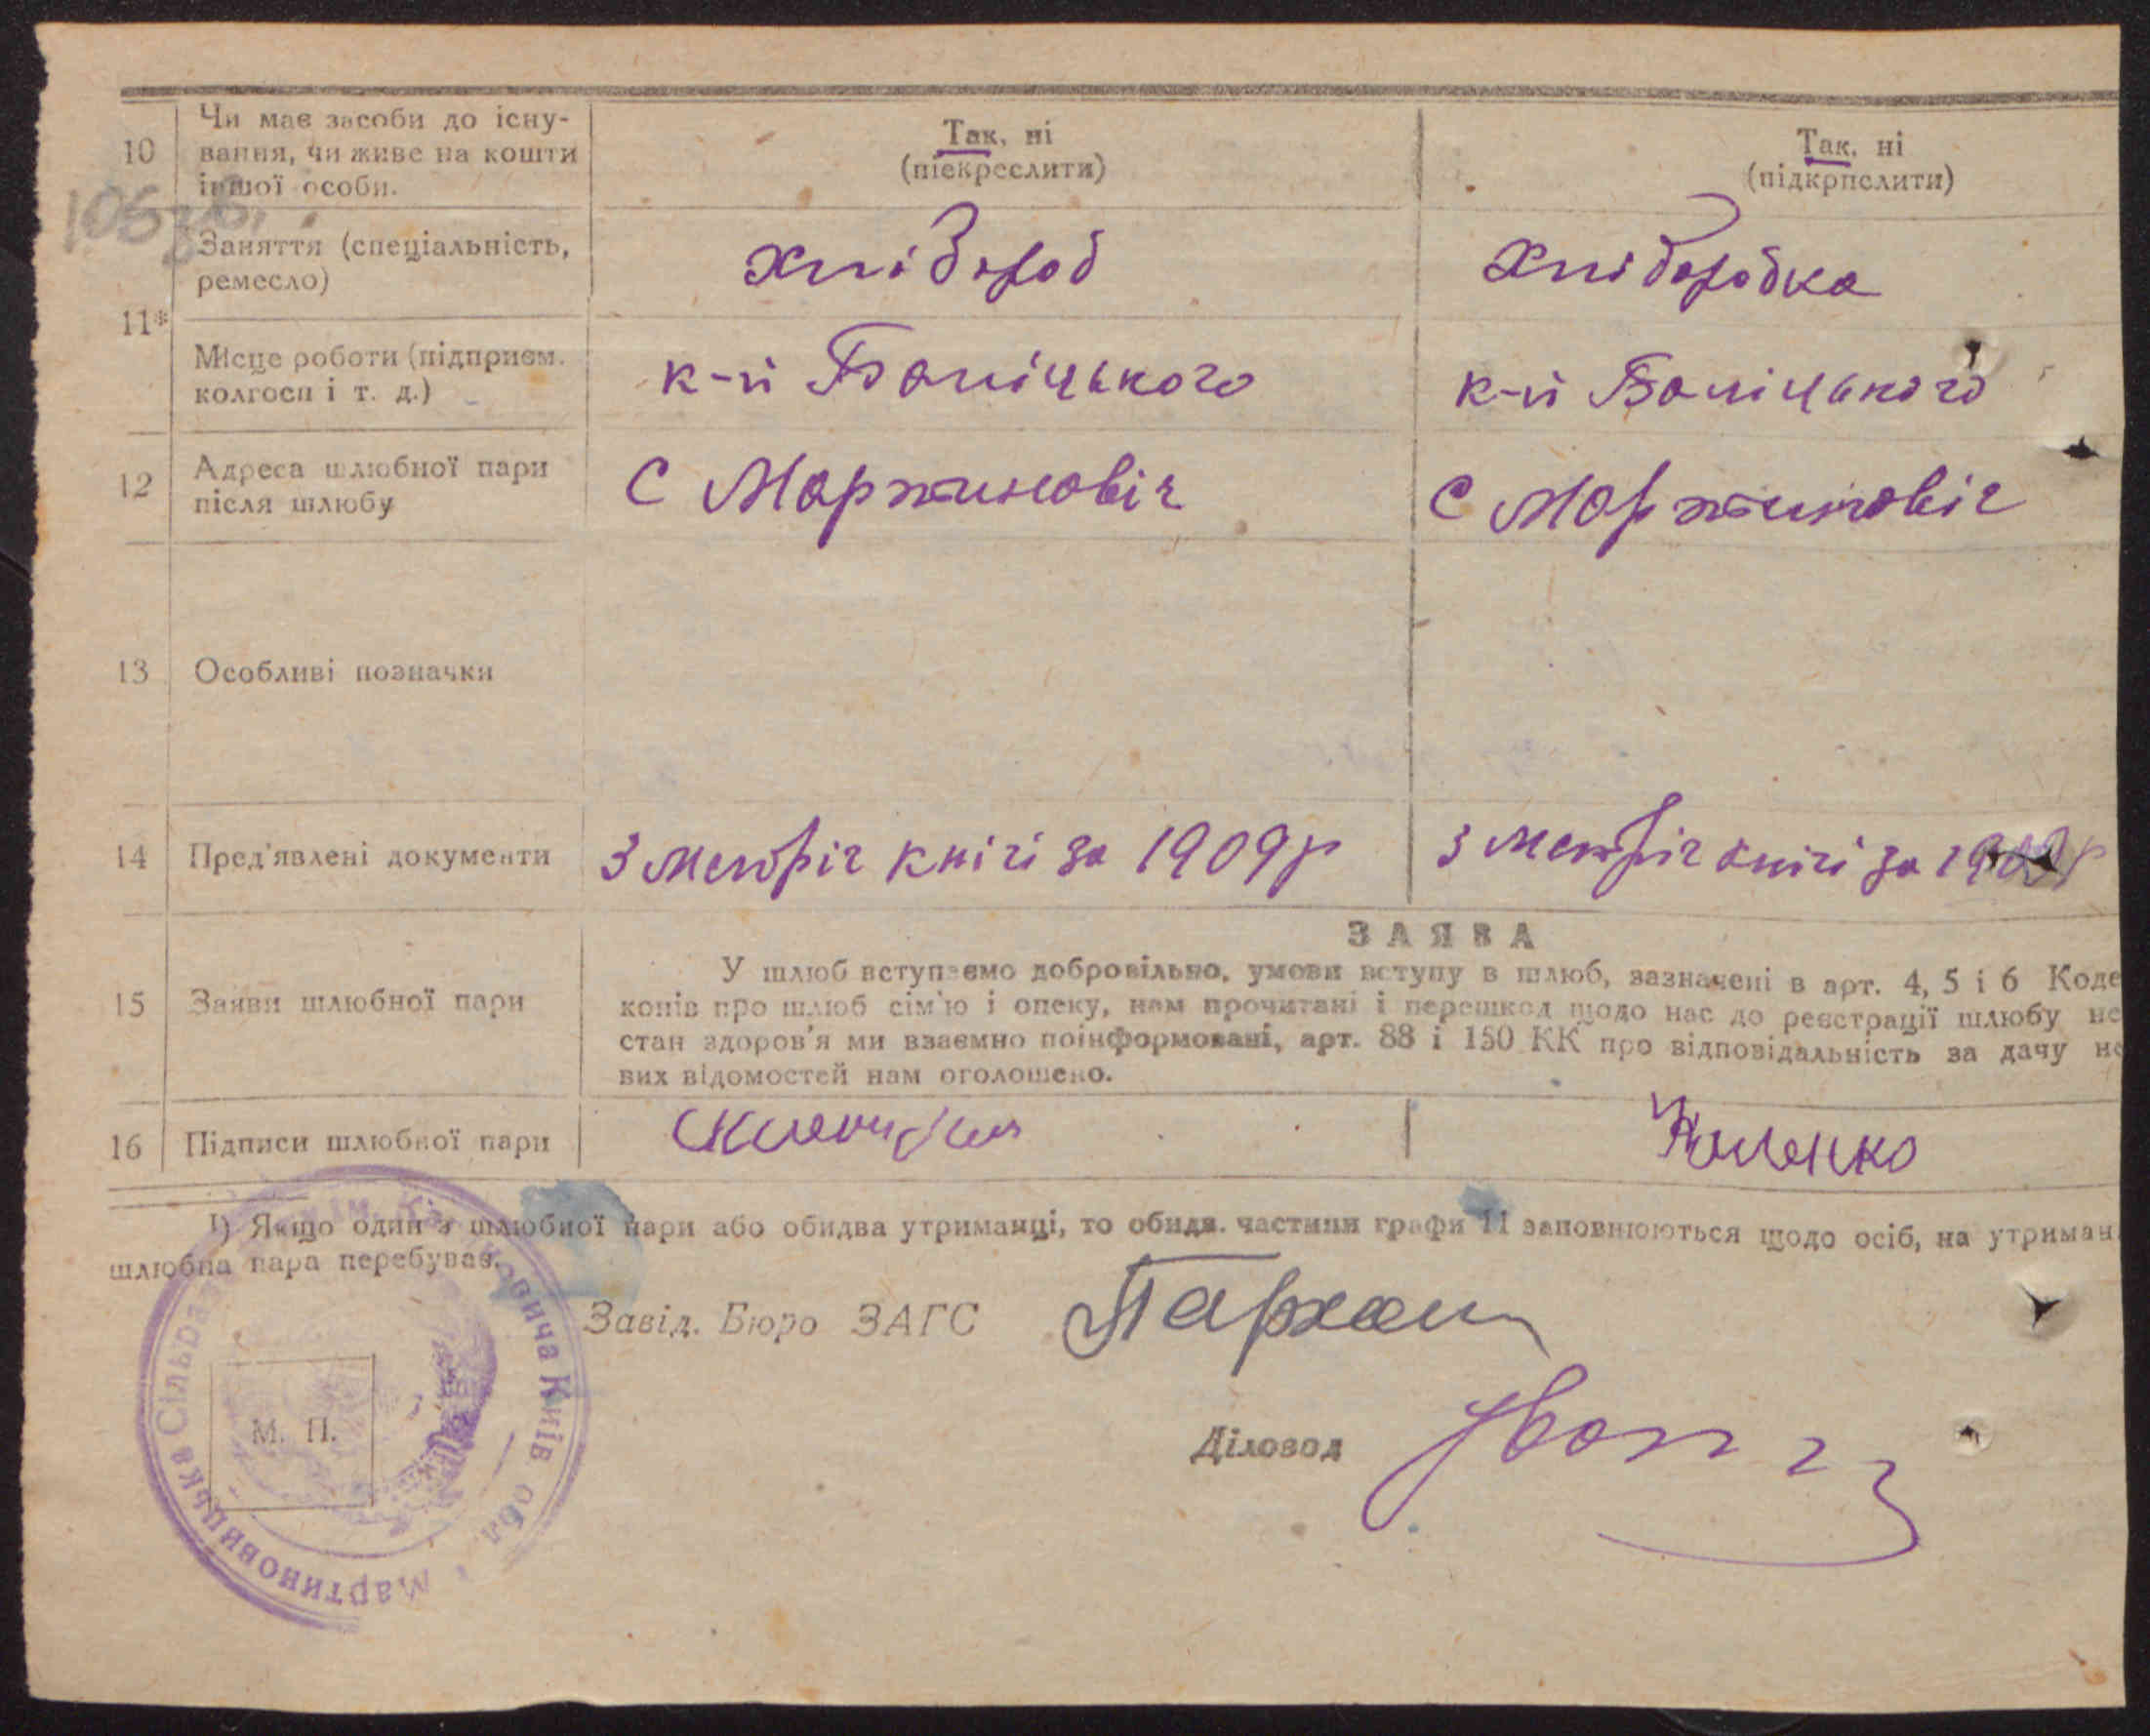 10
Чи має засоби до існу-
вання, чи живе на кошти
іншої особи.
Так, ні
(піекреслити)
Так, ні
(підкрпслити)
106 зв.
11*
Заняття (спеціальність,
ремесло)
хлібороб
хліборобка
Місце роботи (підприєм.
колгосп і т. д.)
к-п Баліцького
к-п Баліцького
12
Адреса шлюбної пари
після шлюбу
С Мартиновіч
С Мартиновіч
13
Особливі позначки
14
Пред'явлені документи
З Метріч кнігі за 1909р
З Метріч кнігі за
15
Заяви шлюбної пари
ЗАЯВА
У шлюб вступаємо добровільно, умови вступу в шлюб, зазначені в арт. 4, 5 і 6 Коде
конів про шлюб сім'ю і опеку, нам прочитані і перешкод щодо нас до реєстрації шлюбу не
стан здоров'я ми взаємно поінформовані, арт. 88 і 150 КК про відповідальність за дачу не
вих відомостей нам оголошено.
16
Підписи шлюбної пари
1) Якщо один з шлюбної пари або обидва утриманці, то обидв. частини графи 11 заповнюються щодо осіб, на утриман
шлюбна пара перебуває.
Завід. Бюро ЗАГС
Діловод
М. П.
Мартиновицька Сільрада
Київ обл